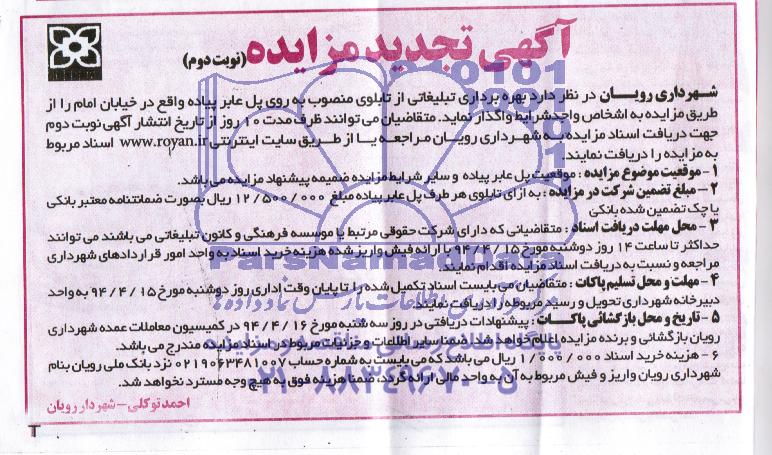 آگهی تجدید مزایده (نوبت دوم)
شهرداری رویان در نظر دارد بهره برداری تبلیغاتی از تابلوی منصوب به روی پل عابر پیاده واقع در خیابان امام را از
طریق مزایده به اشخاص واجد شرایط واگذار نماید. متقاضیان می توانند ظرف مدت ۱۰ روز از تاریخ انتشار آگهی نوبت دوم
جهت دریافت اسناد مزایده به شهرداری رویان مراجعه یا از طریق سایت اینترنتی www.royan.ir اسناد مربوط
به مزایده را دریافت نمایند.
۱- موقعیت موضوع مزایده : موقعیت پل عابر پیاده و سایر شرایط مزایده ضمیمه پیشنهاد مزایده می باشد.
۲- مبلغ تضمین شرکت در مزایده : به ازای تابلوی هر طرف پل عابر پیاده مبلغ ۱۲/۵۰۰/۰۰۰ ریال بصورت ضمانتنامه معتبر بانکی
یا چک تضمین شده بانکی
۳- محل مهلت دریافت اسناد : متقاضیانی که دارای شرکت حقوقی مرتبط یا موسسه فرهنگی و کانون تبلیغاتی می باشند می توانند
حداکثر تا ساعت ۱۴ روز دوشنبه مورخ ۹۴/۴/۱۵ با ارائه فیش واریز شده هزینه خرید اسناد به واحد امور قراردادهای شهرداری
مراجعه و نسبت به دریافت اسناد مزایده اقدام نمایند.
۴- مهلت و محل تسلیم پاکات : متقاضیان می بایست اسناد تکمیل شده را تا پایان وقت اداری روز دوشنبه مورخ ۹۴/۴/۱۵ به واحد
دبیرخانه شهرداری تحویل و رسید مربوطه را دریافت نمایند.
۵- تاریخ و محل بازگشائی پاکات : پیشنهادات دریافتی در روز سه شنبه مورخ ۹۴/۴/۱۶ در کمیسیون معاملات عمده شهرداری
رویان بازگشائی و برنده مزایده اعلام خواهد شد. ضمنا سایر اطلاعات و جزئیات مربوط در اسناد مزایده مندرج می باشد.
۶- هزینه خرید اسناد ۱/۰۰۰/۰۰۰ ریال می باشد که می بایست به شماره حساب ۰۲۱۹۰۶۳۴۸۱۰۰۷ نزد بانک ملی رویان بنام
شهرداری رویان واریز و فیش مربوط به آن به واحد مالی ارائه گردد، ضمنا هزینه فوق به هیچ وجه مسترد نخواهد شد.
احمد توکلی - شهردار رویان
ParsNamadData
۰۲۱-۸۸۳۴۹۶۷۰-۵